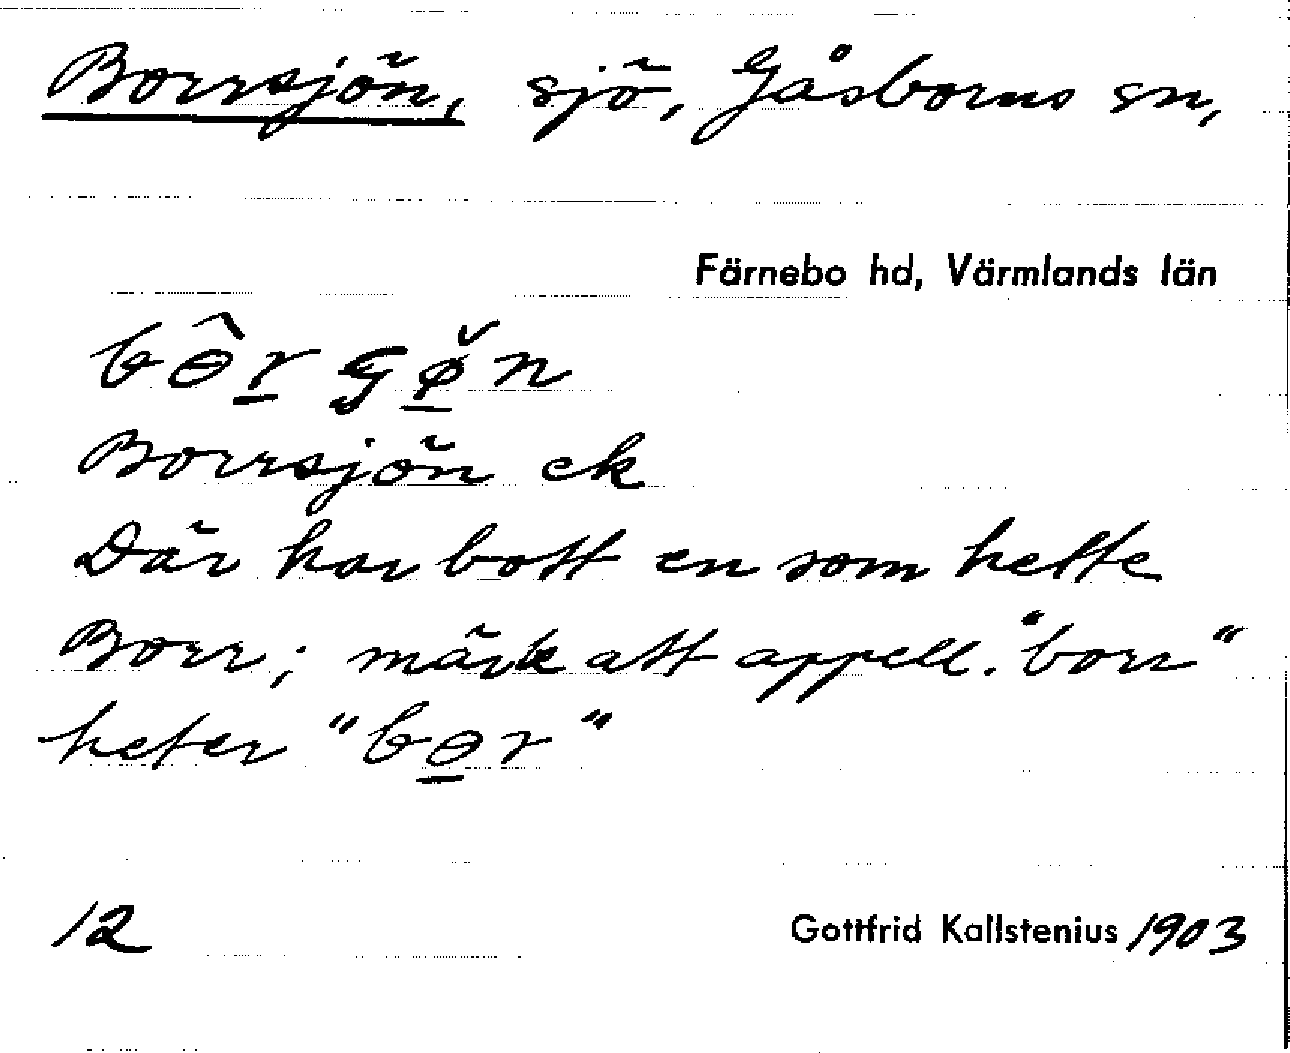 Borrsjön, sjö, Gåsborns sn,
Färnebo hd, Värmlands län
bɵ̂r̲ ɢø̲̆n
Borrsjön ek
Där har bott en som hette
Borr; märk att appell. "borr"
heter "bɵ̲r"
12
Gottfrid Kallstenius 1903